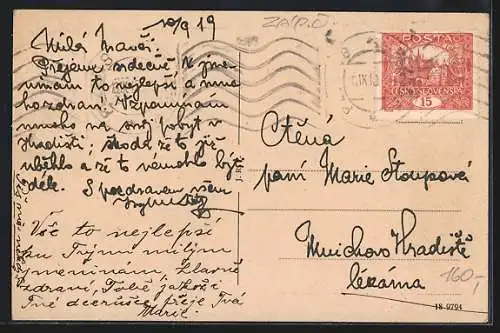 10/9 19
Milá
Přejeme srdečně k jme-
ninám to nejlepší a mno-
ho zdraví. Vzpomínám
mnoho na svůj pobyt v
Hradišti; škoda že to již
uběhlo a že to nemohlo být
déle. S pozdravem všem
Vše to nejlepší
ku Tvým milým
jmeninám, hlavně
zdraví, Tobě jakož i
Tvé dcerušce přeje Tvá
POŠTA
ČESKOSLOVENSKÁ
15
Ctěná
paní Marie Stoupová
Mnichovo Hradiště
lékárna
160,-
18-9794